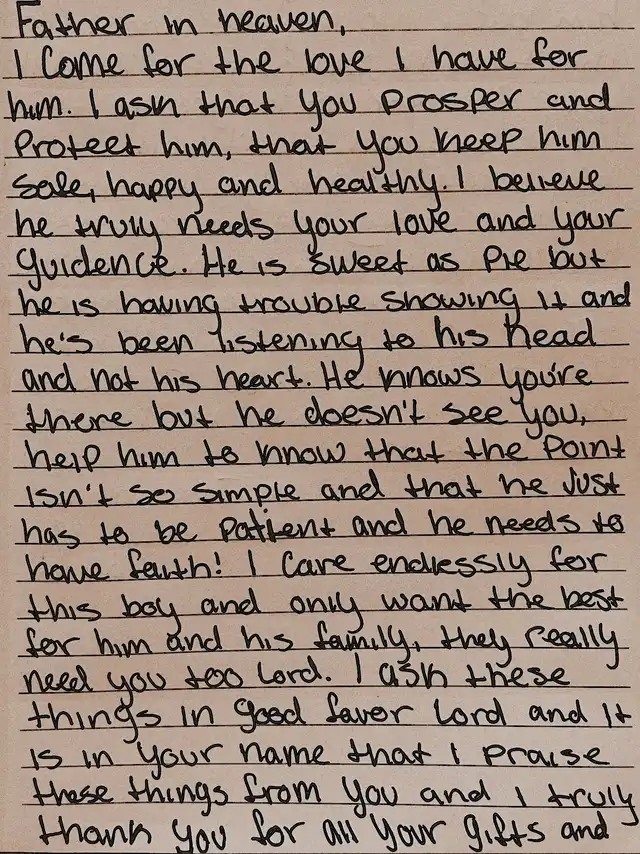 Father in heaven,
I come for the love I have for
him. I ask that you prosper and
protect him, that you keep him
safe, happy and healthy. I believe
he truly needs your love and your
guidence. He is sweet as pie but
he is having trouble showing it and
he's been listening to his head
and not his heart. He knows you're
there but he doesn't see you,
help him to know that the point
isn't so simple and that he just
has to be patient and he needs to
have faith! I care endlessly for
this boy and only want the best
for him and his family, they really
need you too Lord. I ask these
things in good favor Lord and it
is in your name that I praise
these things from you and I truly
thank you for all your gifts and